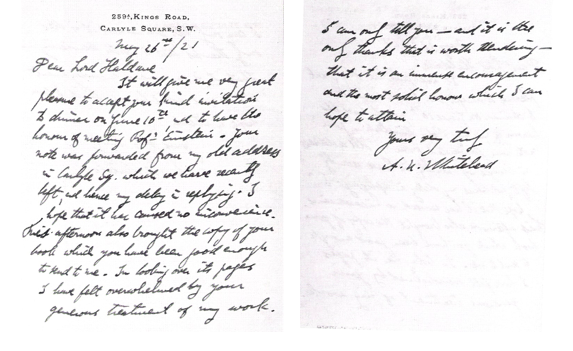 259A, KINGS ROAD,
CARLYLE SQUARE, S.W.
May 26th/21
Dear Lord Haldane
It will give me very great
pleasure to accept your kind invitation
to dinner on June 10th and to have the
honour of meeting Prof: Einstein. Your
note was forwarded from my old address
in Carlyle Sq. which we have recently
left, and hence my delay in replying. I
hope that it has caused no inconvenience.
This afternoon also brought the copy of your
book which you have been good enough
to send to me. In looking over its pages
I have felt overwhelmed by your
generous treatment of my work.
I can only tell you – and it is the
only thanks that is worth rendering –
that it is an immense encouragement
and the most solid honour which I can
hope to attain
Yours very truly
A. N. Whitehead